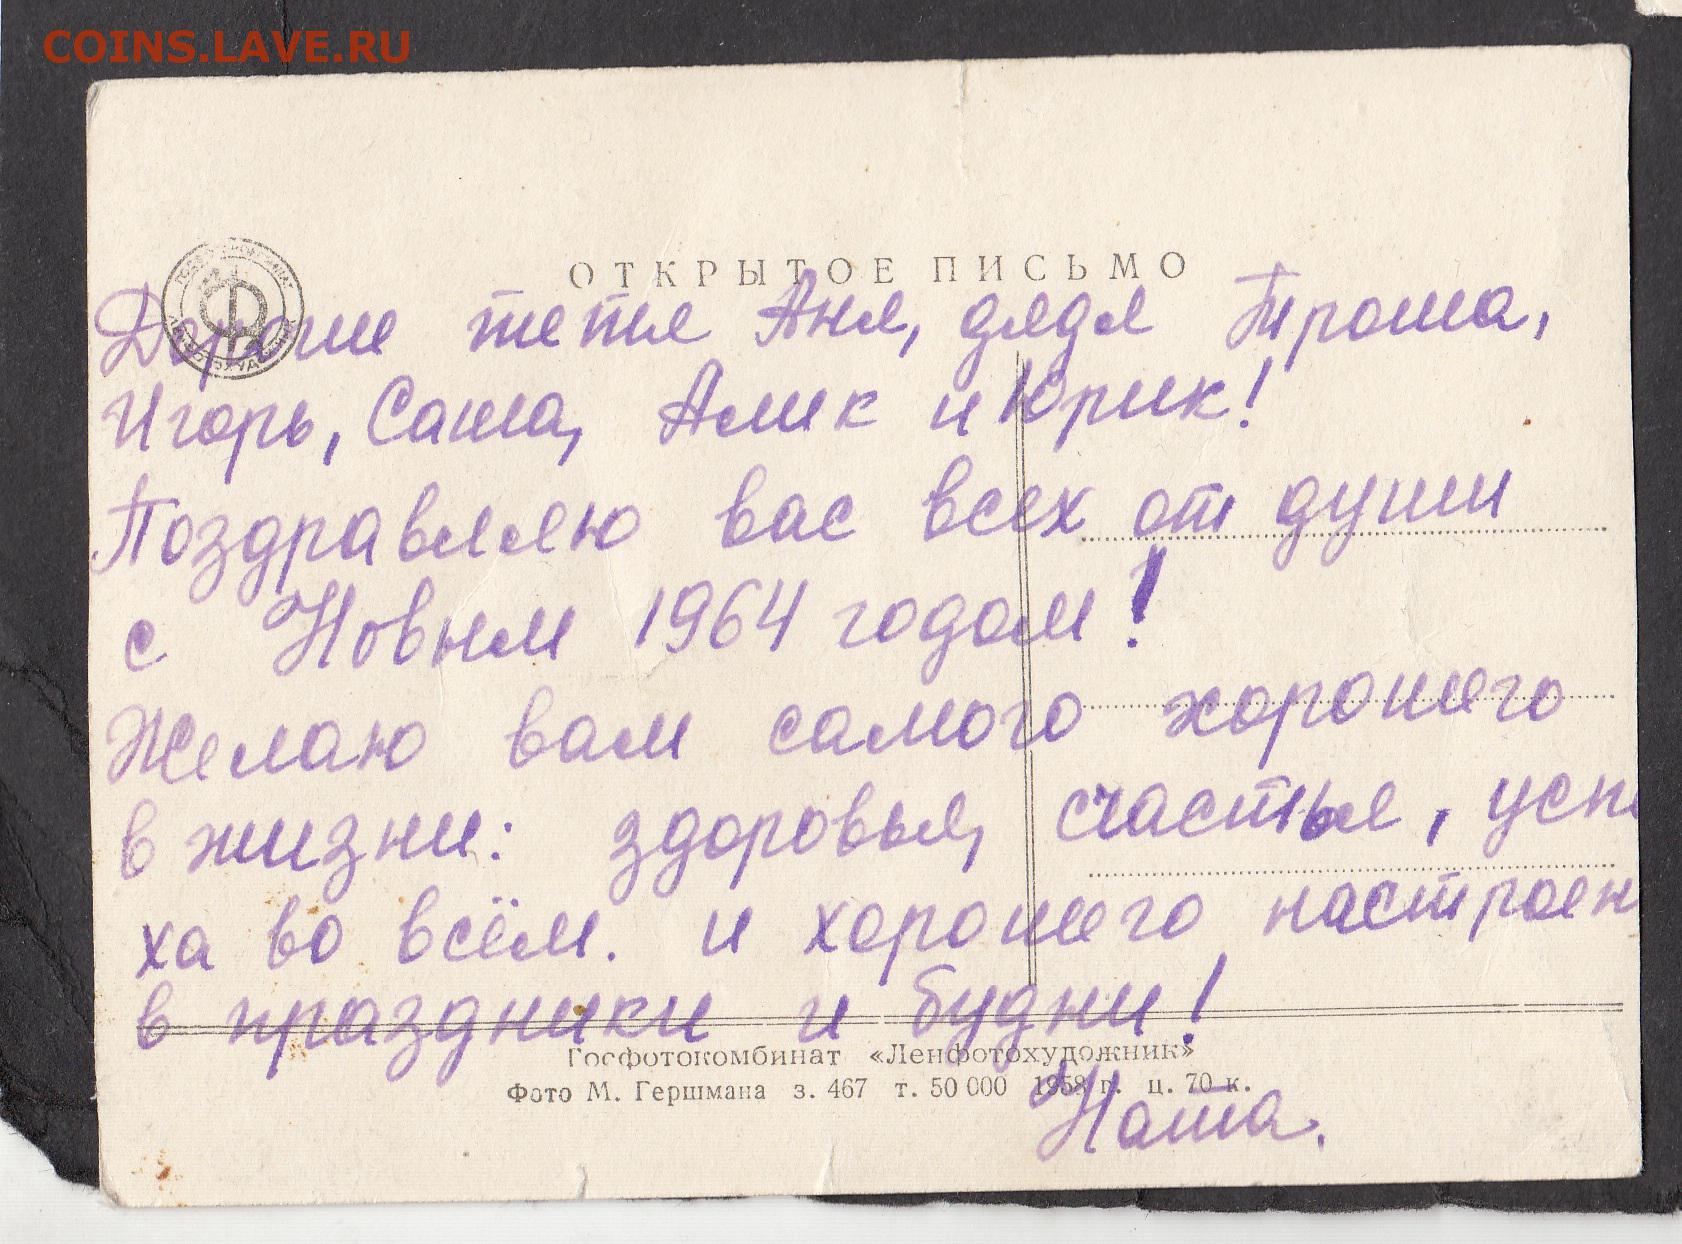 COINS.LAVE.RU
ОТКРЫТОЕ ПИСЬМО
Дорогие тетя Аня, дядя Троша,
Игорь, Саша, Алик и Юрик!
Поздравляю вас всех от души
с Новым 1964 годом!
Желаю вам самого хорошего
в жизни: здоровья, счастья, успе
ха во всём. и хорошего настроен
в праздники и будни!
Госфотокомбинат «Ленфотохудожник»
Фото М. Гершмана з. 467 т. 50 000 1958 г. ц. 70 к.
Ната.